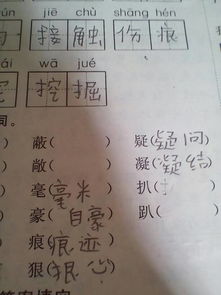 jiē chù shāng hén
接触 伤痕
wā jué
挖掘
) 蔽( ) 疑(疑问)
) 敞( ) 凝(凝结)
) 毫(毫米 ) 扒(
) 豪(自豪 ) 趴( )
) 痕(痕迹)
) 狠(狠心)